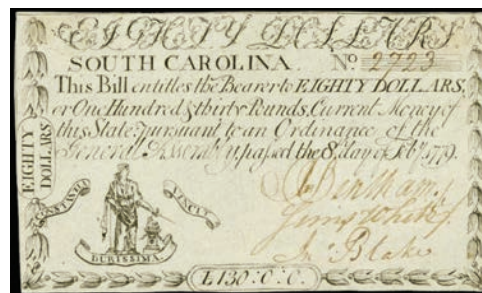 EIGHTY DOLLARS
SOUTH CAROLINA. No. 2723
This Bill entitles the Bearer to EIGHTY DOLLARS,
or One Hundred & thirty Pounds, Current Money of
this State, pursuant to an Ordinance of the
General Assembly, passed the 8, day of Feby. 1779.
EIGHTY
DOLLARS
CONSTANTIA VINCIT
DURISSIMA.
Jno. Blake
£130:0:0.